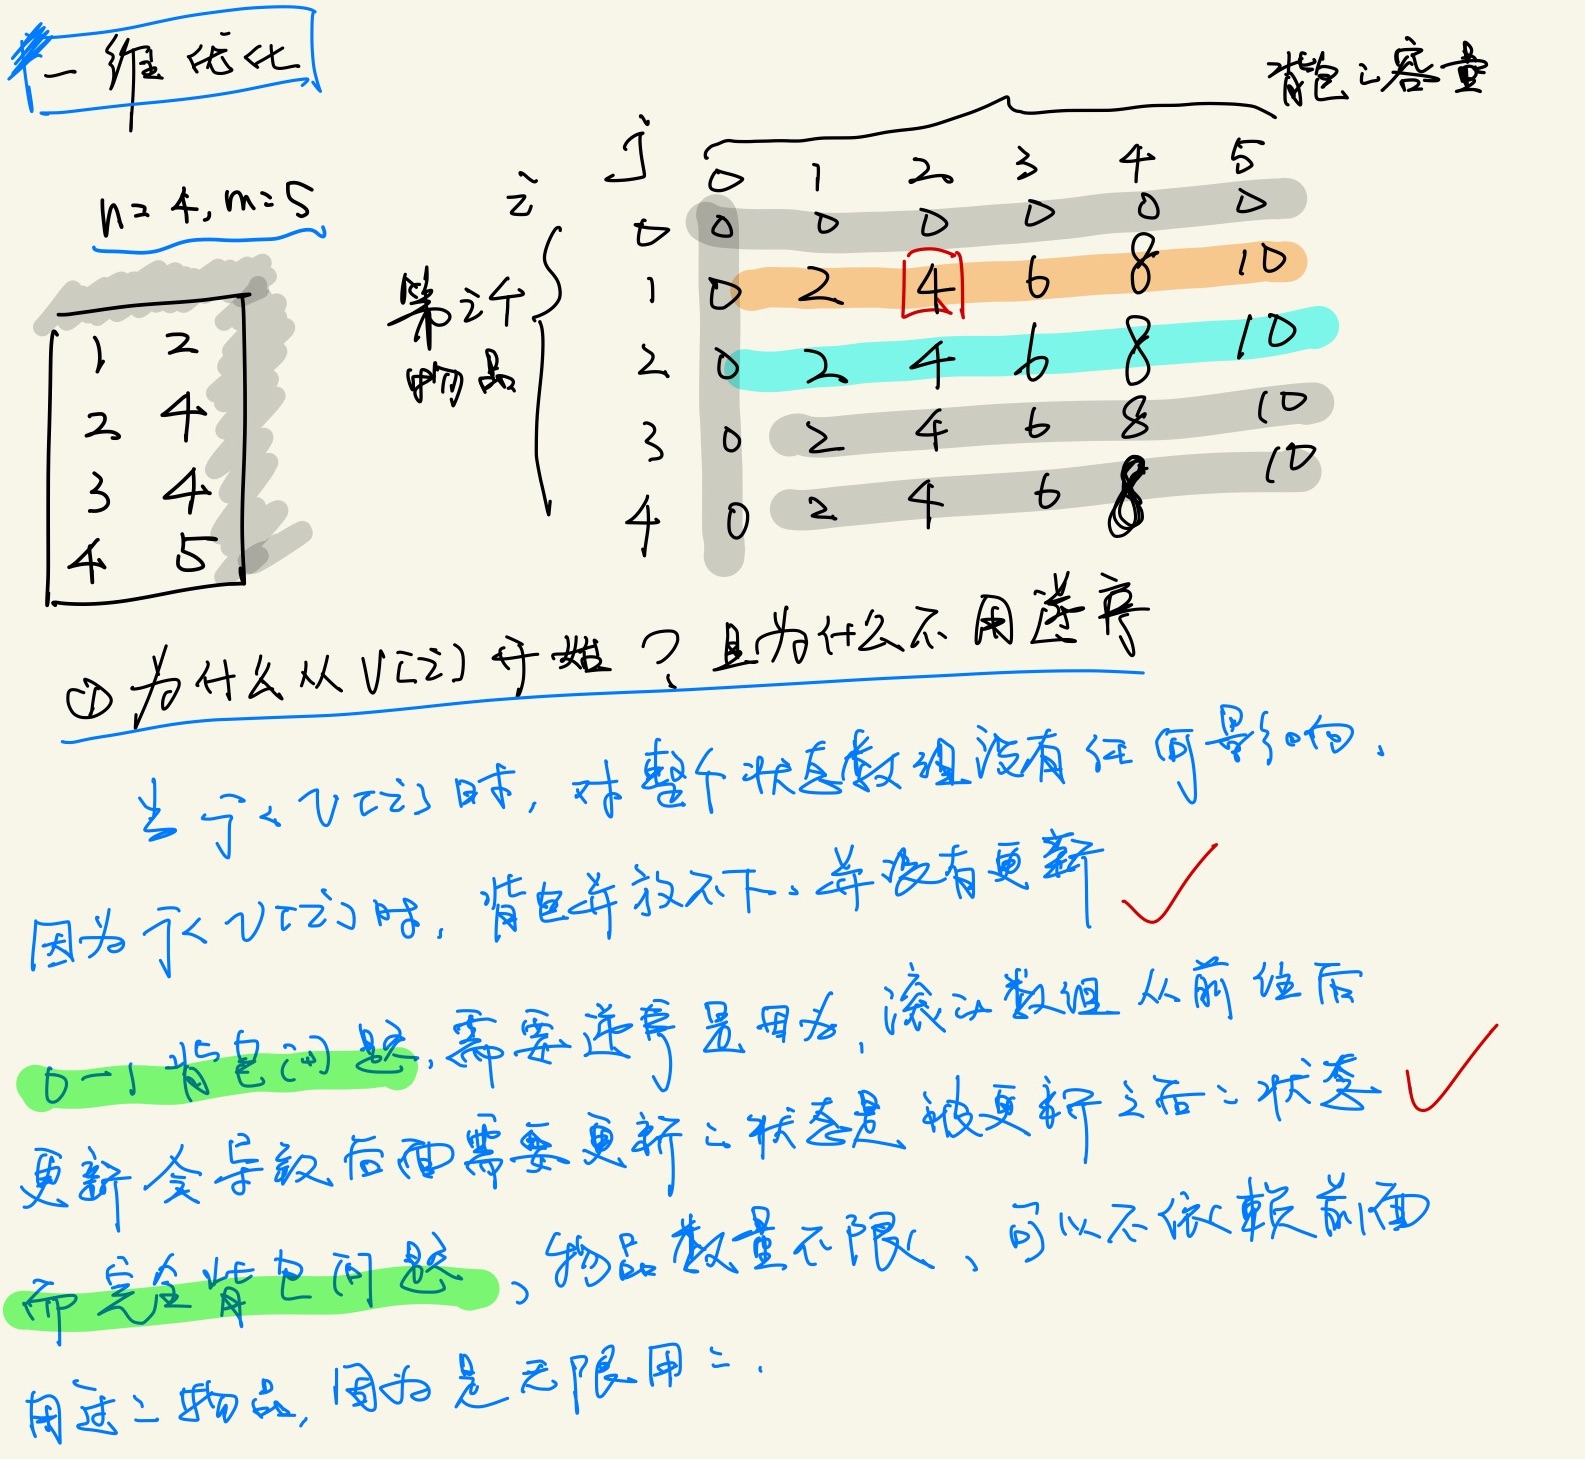 一维优化
背包的容量
n=4, m=5
j
0 1 2 3 4 5
i
0 0 0 0 0 0 0
1 0 2 4 6 8 10
第i个
物品
2 0 2 4 6 8 10
3 0 2 4 6 8 10
4 0 2 4 6 8 10
1 2
2 4
3 4
4 5
① 为什么从V[i]开始？且为什么不用逆序
当j<v[i]时，对整个状态数组没有任何影响．
因为j<v[i]时，背包并放不下、并没有更新
0-1背包问题，需要逆序是因为，滚动数组从前往后
更新会导致后面需要更新的状态是被更新之后的状态
而完全背包问题、物品数量不限、可以不依赖前面
用过的物品，因为是无限用的．